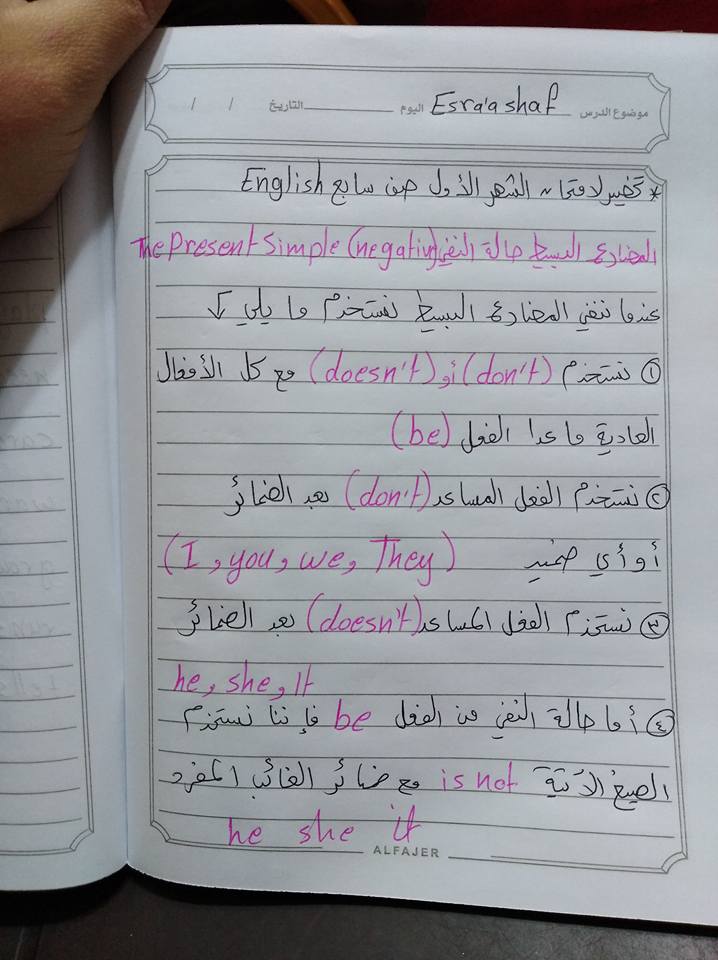 موضوع الدرس Esra'a shaf اليوم التاريخ / /
* تحضير لامتحان الشهر الأول صف سابع English
المضارع البسيط حالة النفي The Present Simple (negativ)
عندما ننفي المضارع البسيط نستخدم ما يلي ↓
① نستخدم (don't) أو (doesn't) مع كل الأفعال
العادية ما عدا الفعل (be)
② نستخدم الفعل المساعد (don't) بعد الضمائر
أو أي ضمير (I, you, we, They)
③ نستخدم الفعل المساعد (doesn't) بعد الضمائر
he, she, It
④ أما حالة النفي من الفعل be فإننا نستخدم
الصيغ الآتية is not مع ضمائر الغائب المفرد
he she it
ALFAJER